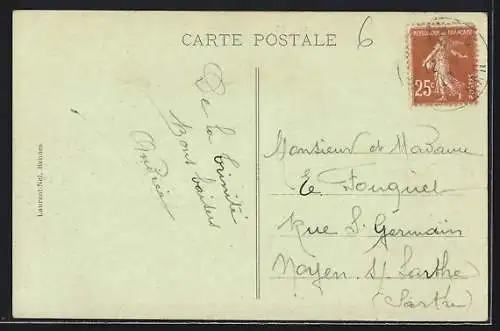 CARTE POSTALE
6
REPUBLIQUE FRANÇAISE
25c
POSTES
De la Trinité
Bons baisers
Andrée
Monsieur et Madame
E. Fouquet
Rue St Germain
Noyen S/ Sarthe
(Sarthe)
Laurent-Nel, Rennes